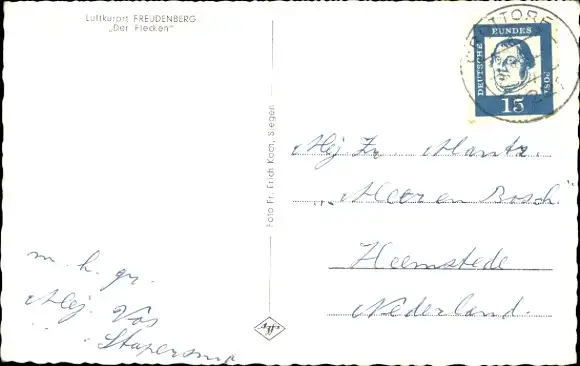 Luftkurort FREUDENBERG
„Der Flecken"
Foto Fr. Erich Koch, Siegen
DEUTSCHE BUNDESPOST
15
Mej. Zr. Mantz.
"Meer en Bosch"
Heemstede
Nederland.
m. h. gr.
Mej. Vos